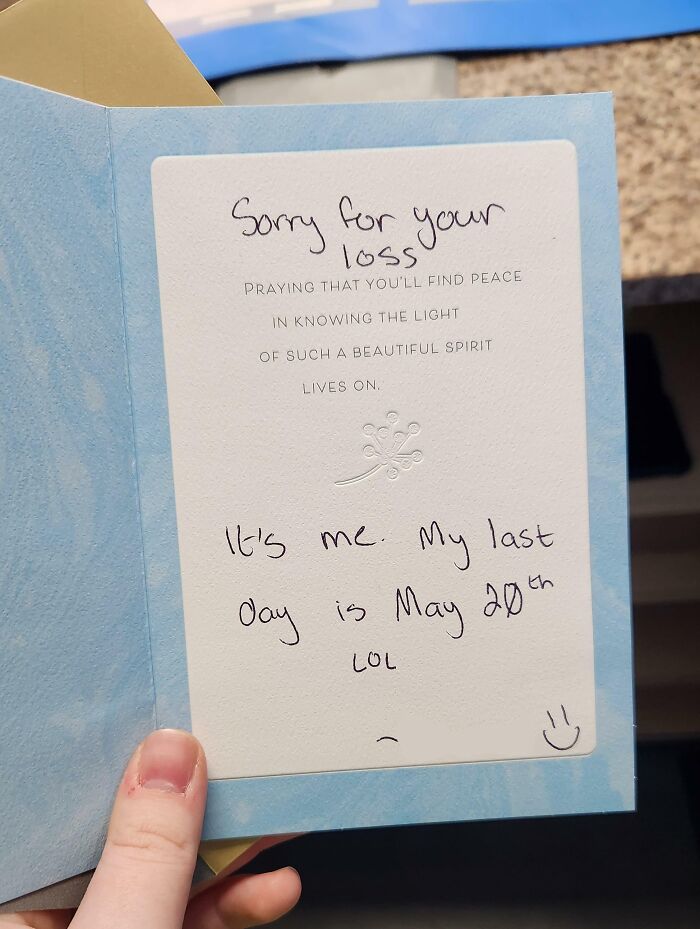 Sorry for your
loss
PRAYING THAT YOU'LL FIND PEACE
IN KNOWING THE LIGHT
OF SUCH A BEAUTIFUL SPIRIT
LIVES ON.
It's me. My last
day is May 20th
LOL